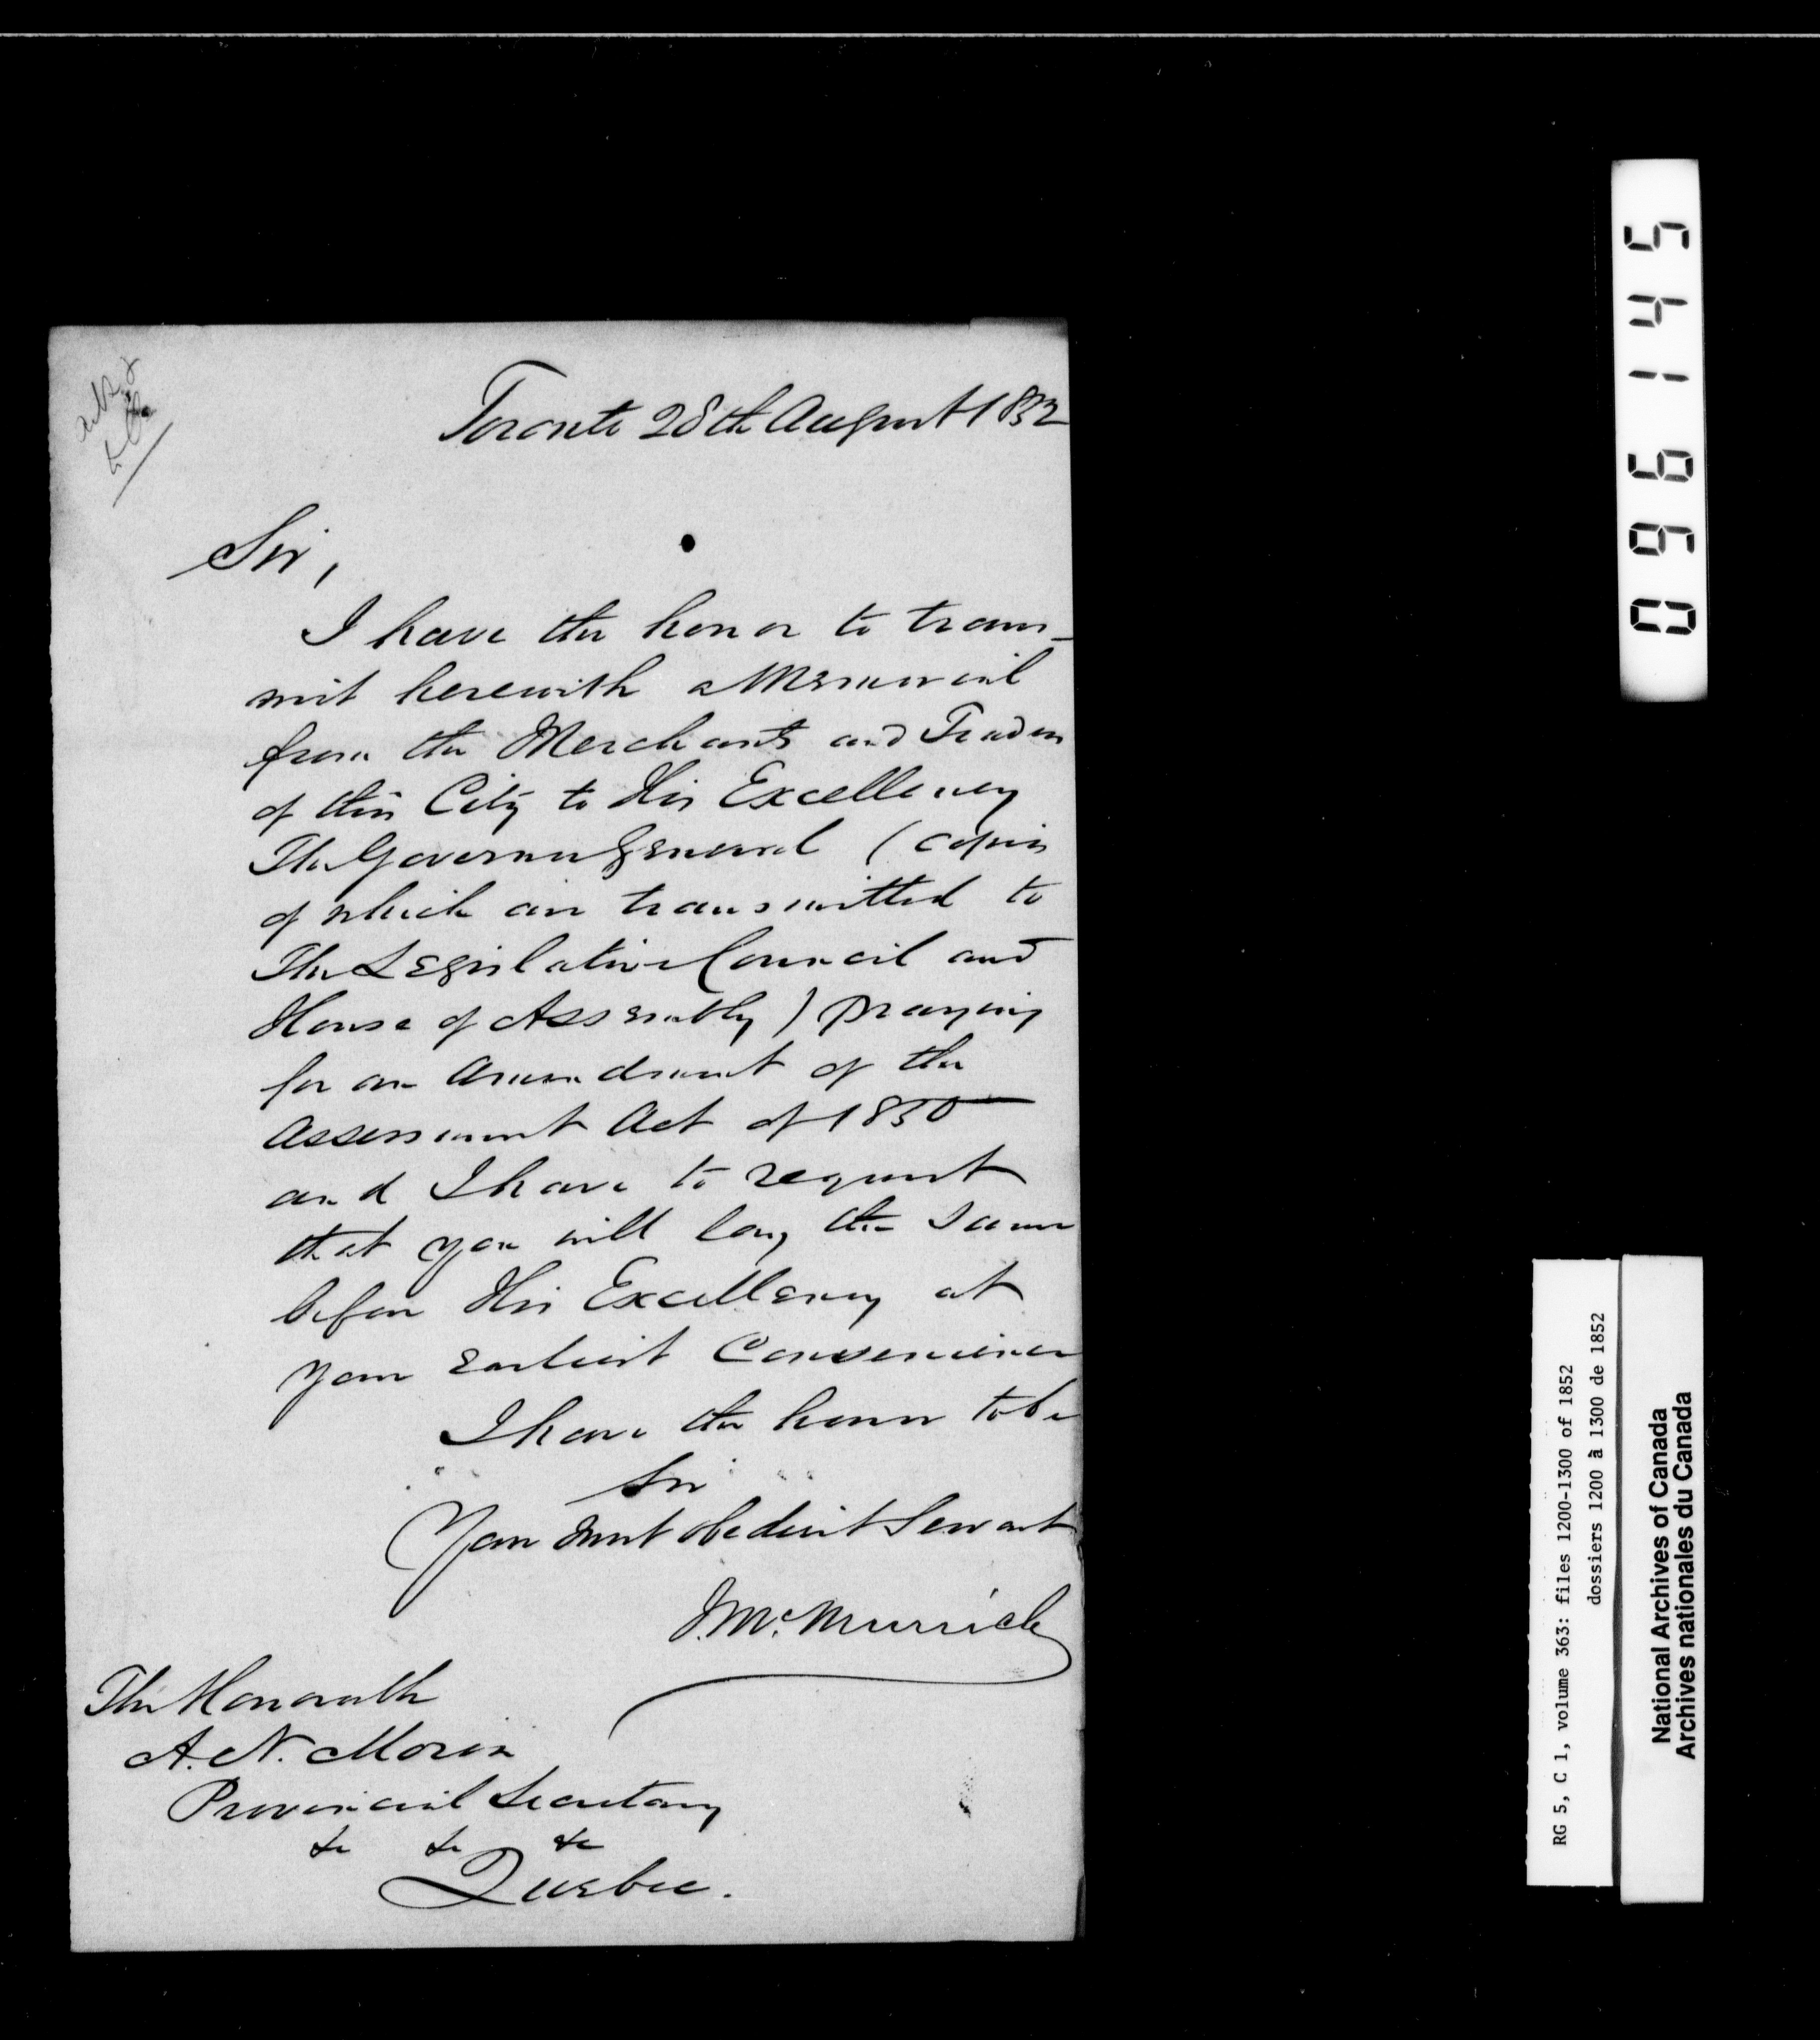 Toronto 28th August 1852
Sir,
I have the honor to trans-
mit herewith a Memorial
from the Merchants and Traders
of this City to His Excellency
The Governor General (copies
of which are transmitted to
The Legislative Council and
House of Assembly) praying
for an amendment of the
Assessment Act of 1850
and I have to request
that you will lay the same
before His Excellency at
your earliest Convenience
I have the honor to be
Sir
Your most obedient Servant
J. McMurrich
The Honorable
A. N. Morin
Provincial Secretary
&c &c &c
Quebec.
096145
RG 5, C 1, volume 363: files 1200-1300 of 1852
dossiers 1200 à 1300 de 1852
National Archives of Canada
Archives nationales du Canada